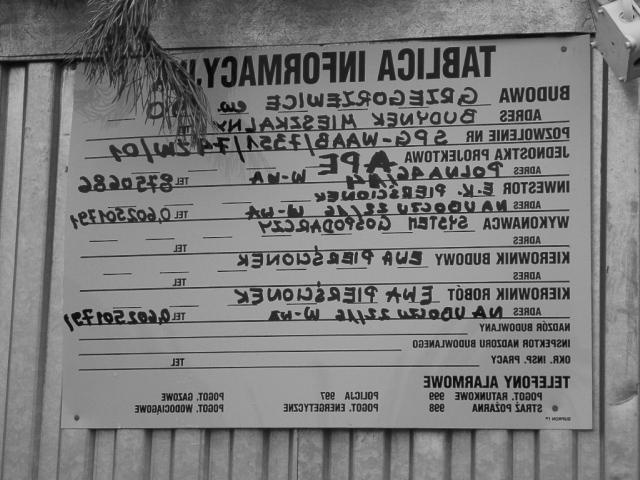 TABLICA INFORMACYJ
BUDOWA GRZEGORZEWICE
ADRES BUDYNEK MIESZKALNY
POZWOLENIE NR SPG-WAAB/7351/
JEDNOSTKA PROJEKTOWA APE
ADRES POLNA W-WA TEL. 8750686
INWESTOR E.K. PIERŚCIONEK
ADRES NA UBOCZU 22/16 W-WA TEL. 0,602501791
WYKONAWCA SYSTEM GOSPODARCZY
ADRES TEL.
KIEROWNIK BUDOWY EWA PIERŚCIONEK
ADRES TEL.
KIEROWNIK ROBÓT EWA PIERŚCIONEK
ADRES NA UBOCZU 22/16 W-WA TEL. 0,602501791
NADZÓR BUDOWLANY
INSPEKTOR NADZORU BUDOWLANEGO
OKR. INSP. PRACY TEL.
TELEFONY ALARMOWE
POGOT. RATUNKOWE 999 POLICJA 997 POGOT. GAZOWE
STRAŻ POŻARNA 998 POGOT. ENERGETYCZNE POGOT. WODOCIĄGOWE